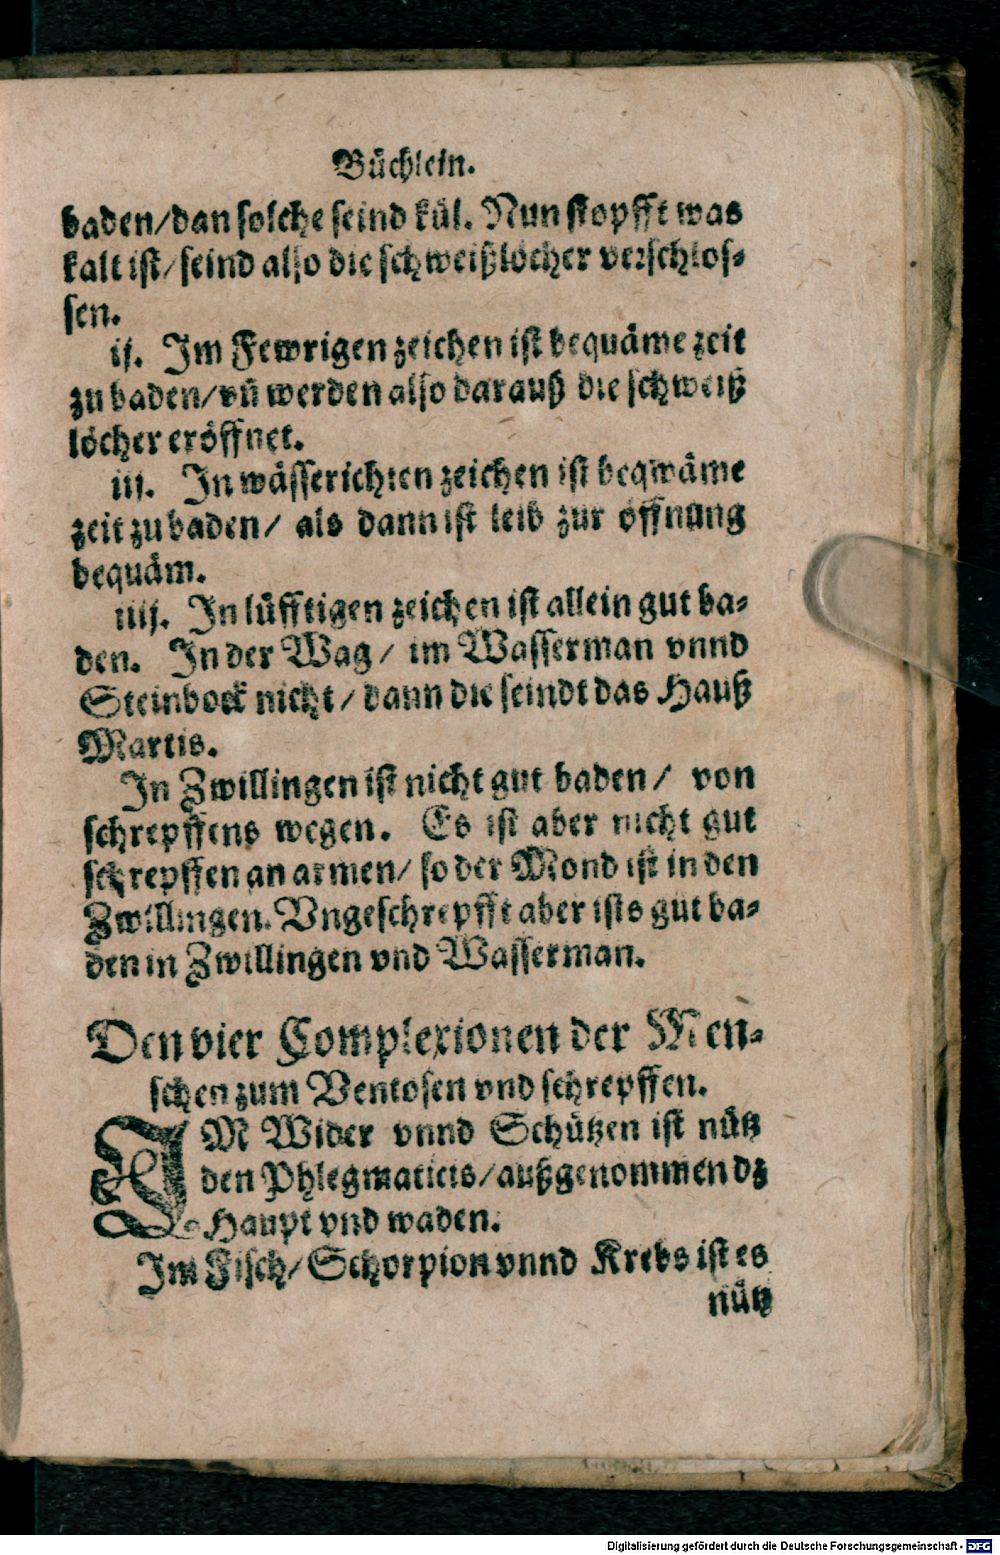 Büchlein.
baden/dan solche seind kül. Nun stopfft was
kalt ist/seind also die schweißlöcher verschlos-
sen.
ij. Im Fewrigen zeichen ist bequäme zeit
zu baden/vñ werden also darauß die schweiß
löcher eröffnet.
iij. In wässerichten zeichen ist beqwäme
zeit zu baden/ als dann ist leib zur öffnung
bequäm.
iiij. In lüfftigen zeichen ist allein gut ba-
den. In der Wag/ im Wasserman vnnd
Steinbock nicht/ dann die seindt das Hauß
Martis.
In Zwillingen ist nicht gut baden/ von
schrepffens wegen. Es ist aber nicht gut
schrepffen an armen/ so der Mond ist in den
Zwillingen. Vngeschrepfft aber ists gut ba-
den in Zwillingen vnd Wasserman.
Den vier Complexionen der Men-
schen zum Ventosen vnd schrepffen.
IM Wider vnnd Schützen ist nütz
den Phlegmaticis/außgenommen dz
Haupt vnd waden.
Im Fisch/ Schorpion vnnd Krebs ist es
nütz
Digitalisierung gefördert durch die Deutsche Forschungsgemeinschaft - DFG